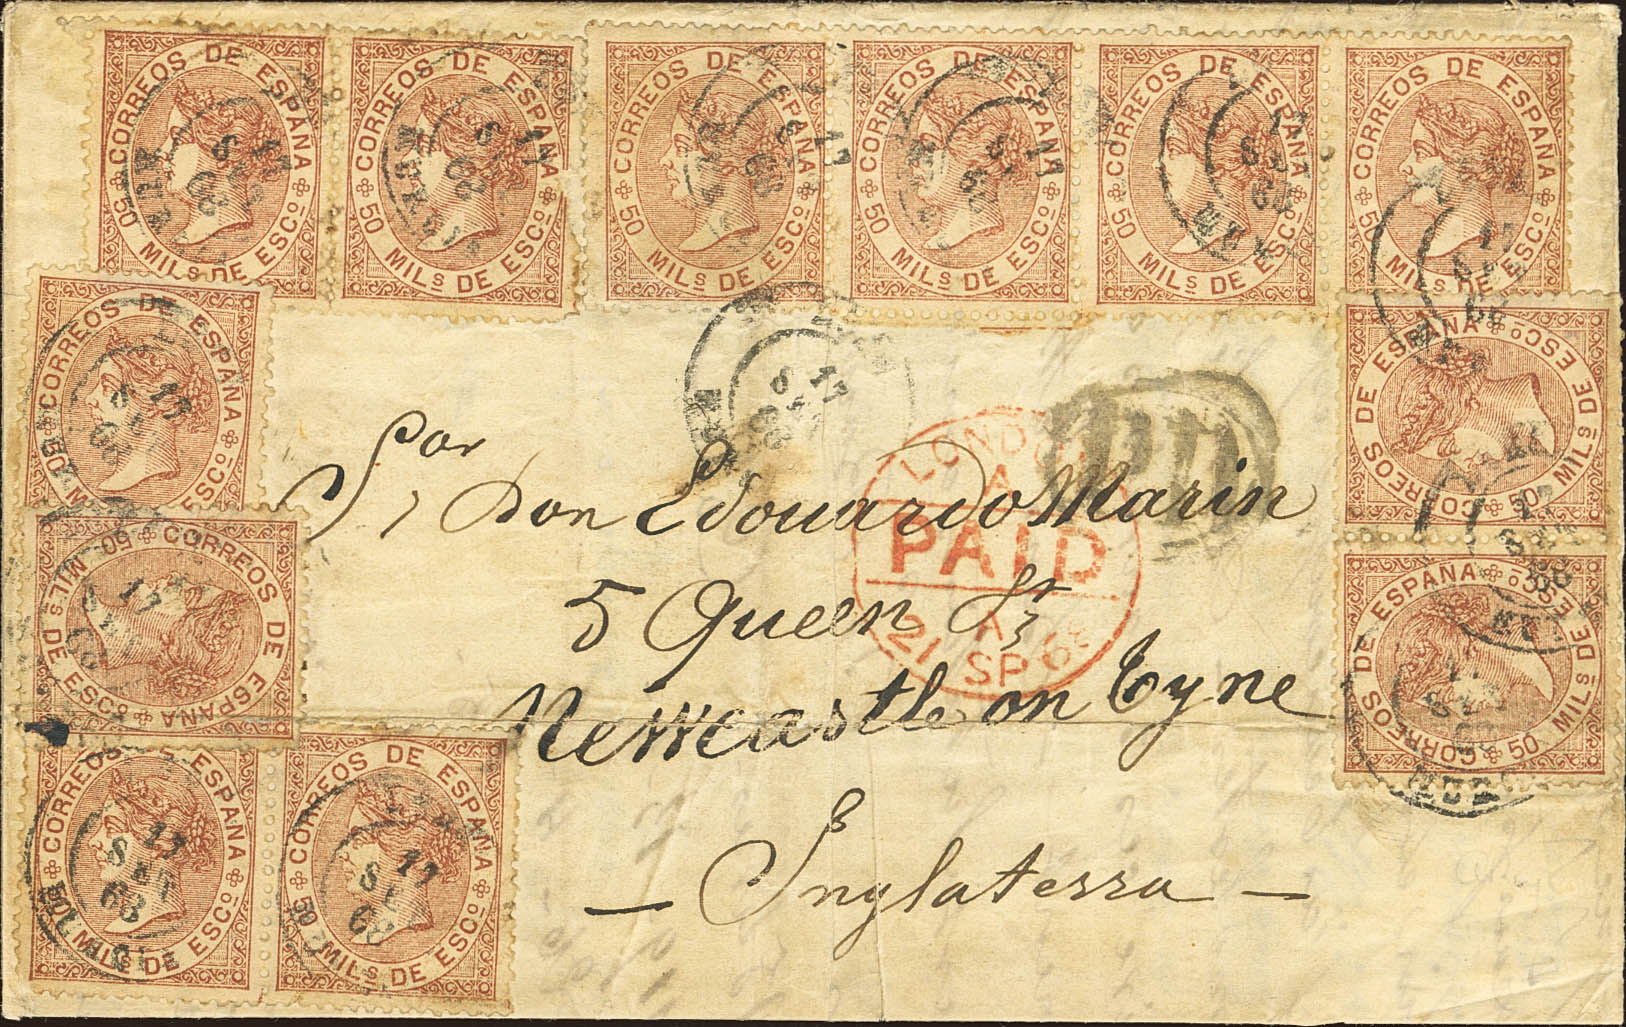 CORREOS DE ESPAÑA
50 MILS DE ESCO
CORREOS DE ESPAÑA
50 MILS DE ESCO
CORREOS DE ESPAÑA
50 MILS DE ESCO
CORREOS DE ESPAÑA
50 MILS DE ESCO
CORREOS DE ESPAÑA
50 MILS DE ESCO
CORREOS DE ESPAÑA
50 MILS DE ESCO
CORREOS DE ESPAÑA
50 MILS DE ESCO
CORREOS DE ESPAÑA
50 MILS DE ESCO
CORREOS DE ESPAÑA
50 MILS DE ESCO
CORREOS DE ESPAÑA
50 MILS DE ESCO
CORREOS DE ESPAÑA
50 MILS DE ESCO
CORREOS DE ESPAÑA
50 MILS DE ESCO
17
SET
68
PD
LONDON
A
PAID
21 SP 6
Sor Don Edouardo Marin
5 Queen St
Newcastle on Tyne
— Inglaterra —